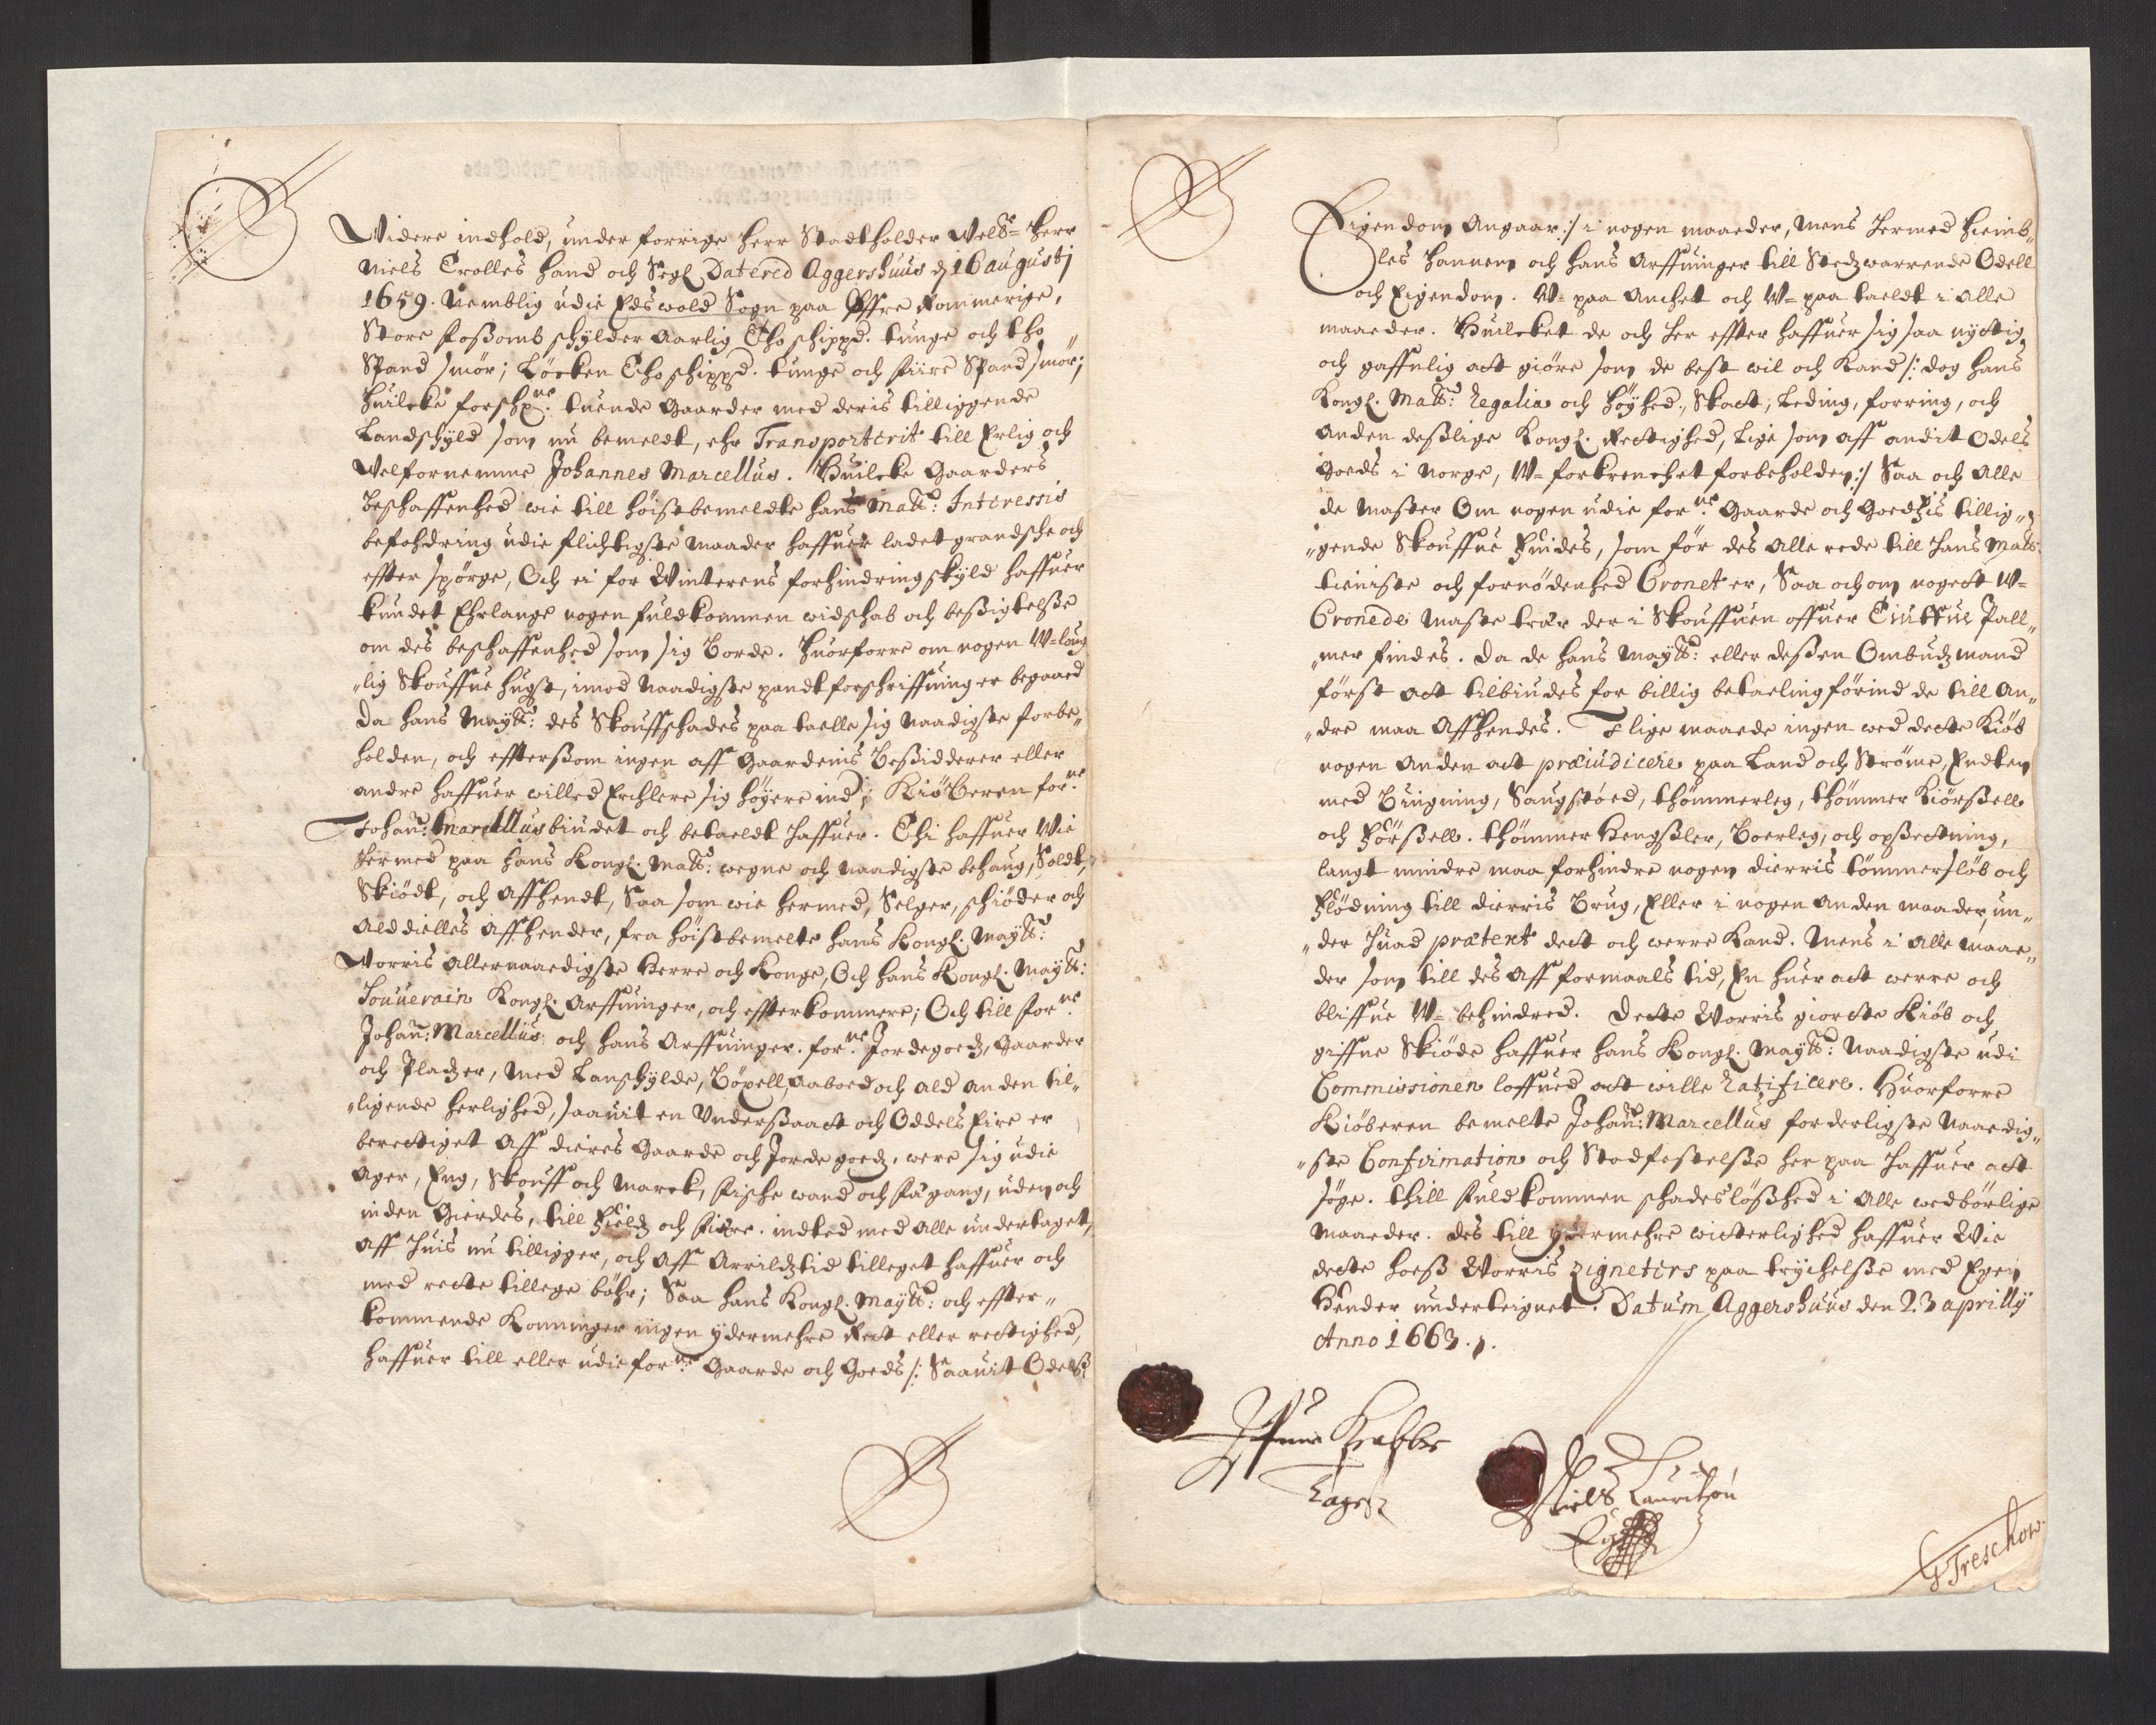 Widere indhold, under forrige Herr Stadtholder Welb: Herr
Niels Trolles hand och Segl Datered Aggershuus d 16 augustj
1659. Nemblig udie Edswold Sogn paa Øffre Rommerige,
Store Foßomb schylder Aarlig Tho schippd. tunge och tho
Spand smör; Löcken Tho schippd. tunge och fiire Spand smör;
Huilcke forschr:ne tuende Gaarder med deris tilliggende
Landschyld som nu bemeldt, ehr Transporterit till Erlig och
Welfornemme Johannes Marcellus. Huilcke Gaarders
beschaffenhed wie till höistbemeldte hans Matts: Interessis
befohdring udie flichtigste maader haffuer ladet grandsche och
effter spörge, Och ei for Winterens forhindring skyld haffuer
kundet Ehrlange nogen fuldkommen widschab och beßigtelße
om des beschaffenhed som sig Borde. Huorforre om nogen W-loug„
„lig Skouffue hugst, imod Naadigste pandt forschriffuing er begaaed
da hans Maytts: des Skouffschades paa taelle sig Naadigste forbe„
holden, och effterßom ingen aff Gaardenis Beßidderer eller
andre haffuer willed Erchlere sig höyere ind; Kiöberen for:ne
Johan: Marcellus biudet och betaeldt haffuer. Thi haffuer Wie
hermed paa hans Kongl. Matts: wegne och naadigste behaug, Soldt,
Skiödt, och Affhendt, Saa som wie hermed, Selger, schiöder och
Alddielles affhender, fra höistbemelte hans Kongl. Maytts:
Worris allernaaedigste Herre och Konge, Och hans Kongl. Maytts:
Souuerain Kongl. Arffuinger, och effterkommere; Och till for:ne
Johan: Marcellus och hans Arffuinger. for:ne Jordegoedz, Gaarder
och Pladzer, med Lanschylde, Böxell, aaboed och ald anden til„
„ligende herlighed, saauit en Underßaatt och Oddels Eire er
berettiget aff dieres Gaarde och Jorde goedz, were sig udie
ager, Eng, Skouff och Marck, fische wand och fägang, uden och
inden Gierdes, till Field och fiere. indted med alle undertaget,
aff huis nu tilligger, och aff Arrildz tid tilleget haffuer och
med rette tillege böhr; Saa hans Kongl. Maytts: och effter„
kommende Konninger ingen ydermehre Rett eller rettighed,
haffuer till eller udie for:ne Gaarde och Goeds /: Saauit Odelß
Eigendom Angaar :/ i nogen maaeder, mens hermed hiemb„
les hannem och hans Arffuinger till Stedz warrende Odell
och Eigendom. W= paa Anchet och W= paa taeldt i alle
maaeder. Huilcket de och her effter haffuer sig saa nyttig
och gaffnlig att giöre som de best wil och kand /: dog hans
Kongl. Matts: Regalia och höyhed, Skatt, Leding, forring, och
anden deßlige Kongl. Rettighed, lige som aff andit Odels
Goeds i Norge, W= forkrenchet forbeholden :/ Saa och alle
de Master Om nogen udie for:ne Gaarde och Goedzis tillig„
„gende Skouffue findes, som för des alle rede till hans Matts:
tieniste och fornödenhed Cronet er, Saa och om nogett W=
Cronede Maste trær der i Skouffuen offuer Tiuffue Pall„
„mer findes. Da de hans Maytts: eller deßen Ombudzmand
först att tilbiudes for billig betaeling förind de till An„
„dre maa Affhendes. I lige maaede ingen wed dette Kiöb
nogen Anden att præiudicere paa Land och Ströme, Endten
med Bringning, Saugstöed, thömmerleg, thömmer Kiörßell
och Förßell. thömmer Hengßler, Boerleg, och opßettning,
langt mindre maa forhindre nogen dierris tömmerslöb och
Flödning till dierris Brug, Eller i nogen anden maader, un„
„der huad prætext dett och werre kand. Mens i alle maae„
der som till des aff formaals tid, En huer att werre och
bliffue W= behindred. Dette Worris giorte Kiöb och
giffne Skiöde haffuer hans Kongl. Maytts: Naadigste udi
Commissionen loffued att wille Ratificere. Huorforre
Kiöberen bemelte Johan: Marcellus forderligste Naaedig„
„ste Confirmation och Stadfestelße her paa haffuer att
söge. thill fuldkommen schadeslößhed i alle wedbörlige
Maaeder. Des till ydermehre witterlighed haffuer Wie
dette hoeß Worris zigneters paa trychelße med Egen
Hender underteignet. Datum Aggershuus den 23 aprilly
Anno 1663.
Iffuer Krabbe
Niels Lauritzøn
G Treschow.